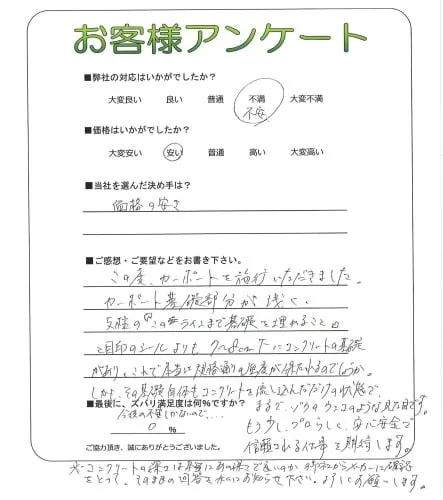 お客様アンケート
■弊社の対応はいかがでしたか?
大変良い 良い 普通 不満 大変不満
不安
■価格はいかがでしたか?
大変安い 安い 普通 高い 大変高い
■当社を選んだ決め手は?
価格の安さ
■ご感想・ご要望などをお書き下さい。
この度、カーポートを施行いただきました。
カーポート基礎部分が浅く、
支柱の"このラインまで基礎を埋めること"
と目印のシールよりも 7〜8cm下にコンクリートの基礎
があり、これで本当に規格通りの強度が保たれるのでしょうか。
しかも、その基礎自体もコンクリートを流し込んだだけの状態で、
■最後に、ズバリ満足度は何%ですか?
まるで、ゾウのウンコのような見た目です。
今後の不安しかないので....
0 %
もう少し、プロらしく、安心安全で
信頼される仕事を期待します。
ご協力頂き、誠にありがとうございました。
※コンクリートの様子は本当にあの様子で良いのか メーカーに確認
をとって、そのままの回答を私にお知らせ下さい。よろしくお願いします。